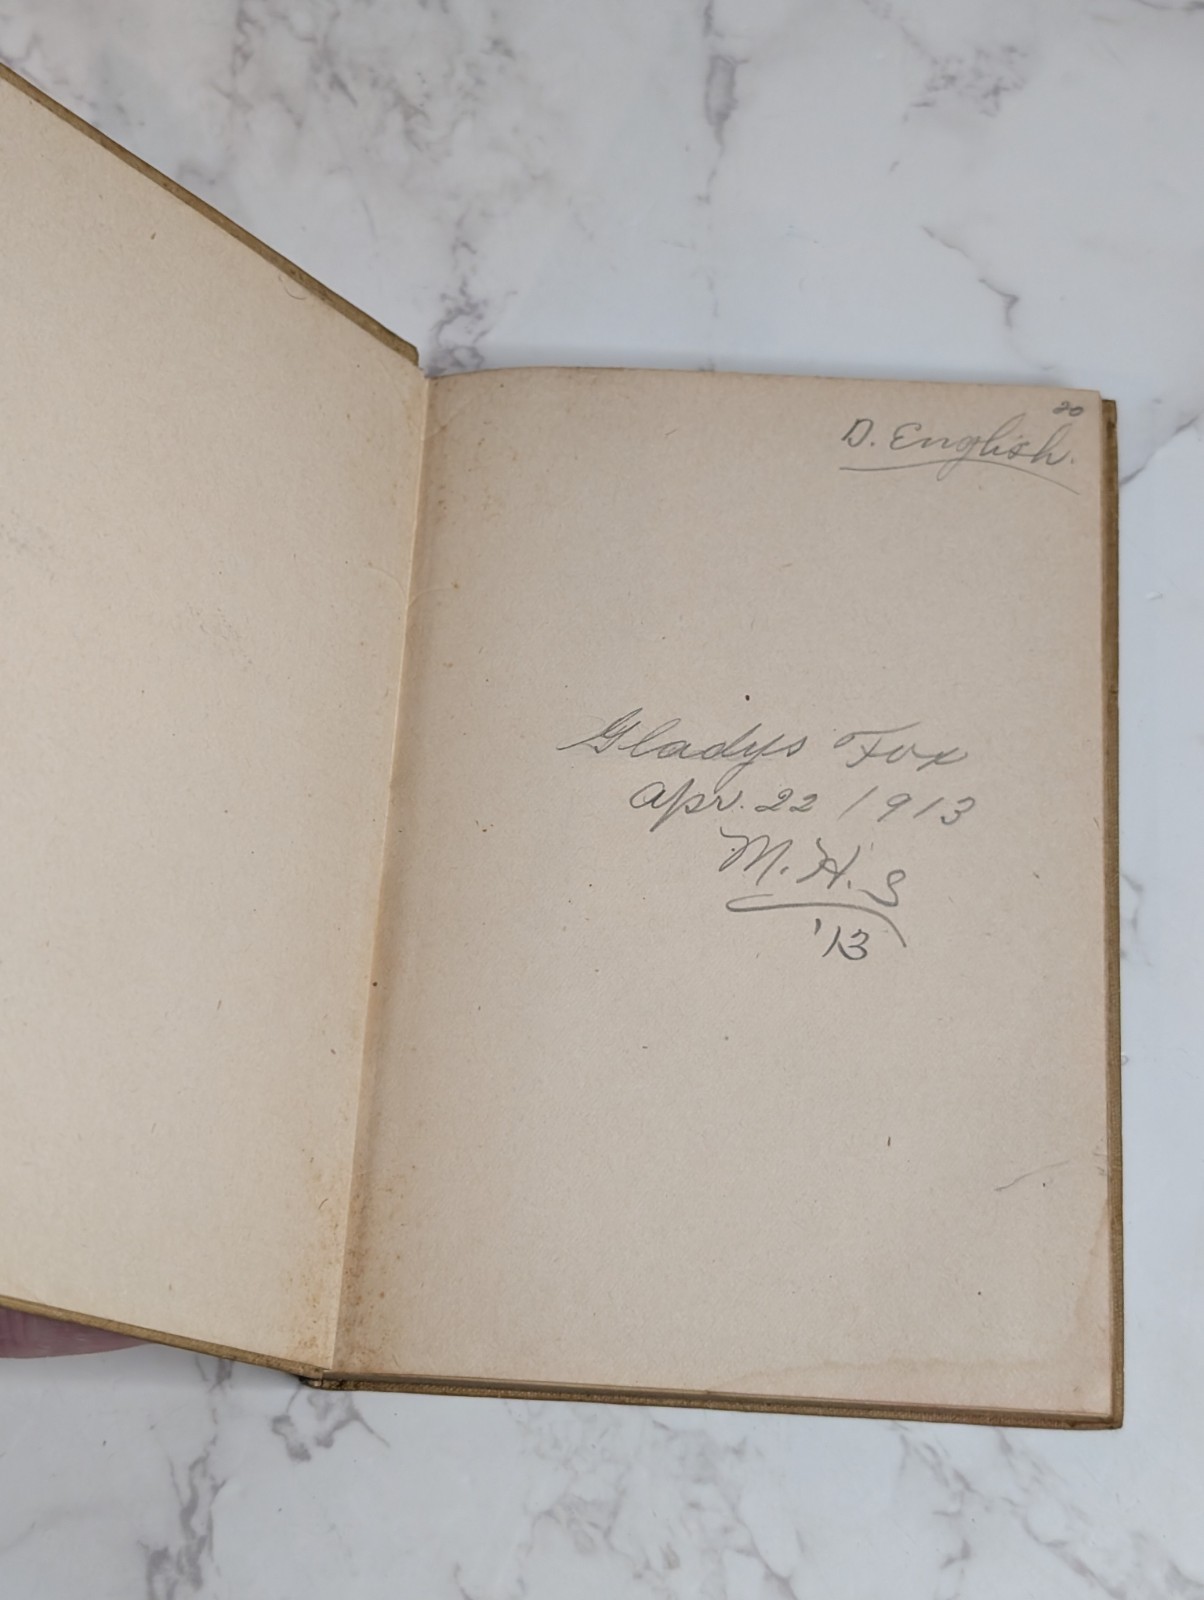 20
D. English.
Gladys Fox
Apr. 22 1913
M. H. S
'13